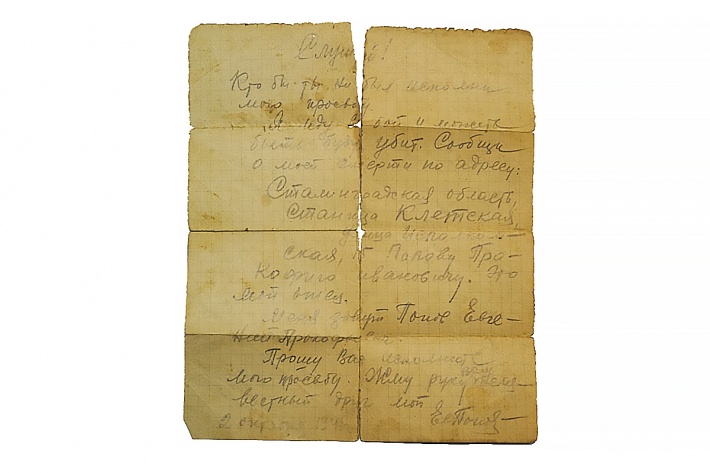 Слушай!
Кто бы ты ни был исполни
мою просьбу.
Я иду в бой и может
быть буду убит. Сообщи
о моей смерти по адресу:
Сталинградская область,
Станица Клетская,
улица
ская, Попову Про-
кофию Ивановичу. Это
мой отец.
Меня зовут Попов Евге-
ний Прокофьевич.
Прошу Вас исполнить
мою просьбу. Жму руку
вестный друг мой
2 194
Е. Попов